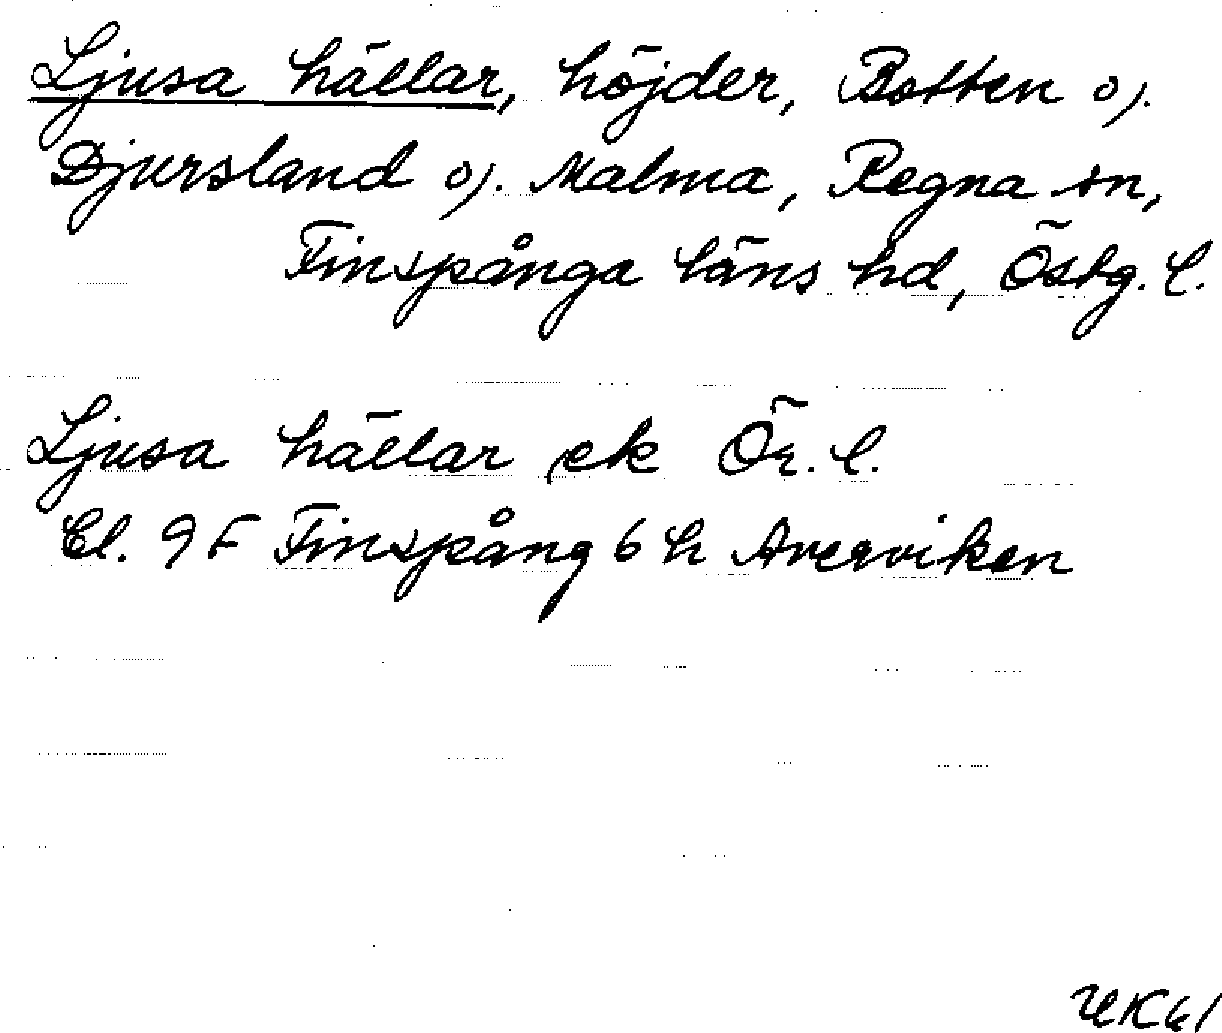 Ljusa hällar, höjder, Botten o).
Djursland o). Malma, Regna sn,
Finspånga läns hd, Östg. l.
Ljusa hällar ek Ör. l.
El. 9 F Finspång 6 h Averviken
UK61